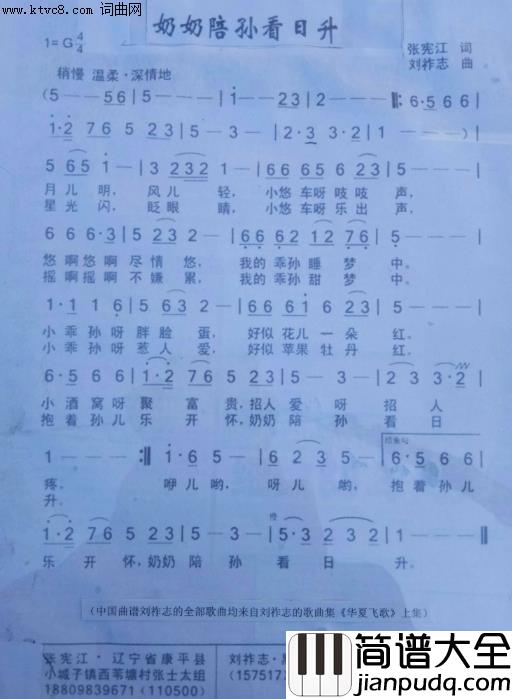 www.ktvc8.com 词曲网
奶奶陪孙看日升
1=G 4/4
张宪江 词
刘祚志 曲
稍慢 温柔·深情地
(5 — — 56 | 5 — — — | 1 — — 23 | 2 — — — |: 6·5 6 6 |
1·2 76 5 23 | 5 — 3 — | 2·3 3·2 | 1 — — — ) |
5 65 1 — | 3 232 1 — | 66 65 6 23 | 5 — — — |
月儿明, 风儿轻, 小悠车呀吱吱声,
星光闪, 眨眼睛, 小悠车呀乐出声,
6 6 6·3 | 5 23 2 — | 66 62 12 76 | 5 — — — |
悠啊悠啊尽情悠, 我的乖孙睡梦中。
摇啊摇啊不嫌累, 我的乖孙甜梦中。
1·1 1 6 | 5 63 2 — | 12 16 5 23 | 5 — — — |
小乖孙呀胖脸蛋, 好似花儿一朵红。
小乖孙呀惹人爱, 好似苹果牡丹红。
6·5 6 6 | 1·2 76 5 23 | 5 — 2 3 | 2 3 3·2 |
小酒窝呀聚富贵,招人爱呀招人
抱着孙儿乐开怀,奶奶陪孙看日
结束句
1 — — — :| 1·6 5 — | 1·6 5 — | 6·5 6 6 |
疼。 咿儿哟, 呀儿哟, 抱着孙儿
升。
慢
1·2 76 5 23 | 5 — 3 — | 5·3 23 2 | 1 — — — ||
乐开怀,奶奶陪孙看日升。
(中国曲谱刘祚志的全部歌曲均来自刘祚志的歌曲集《华夏飞歌》上集)
张宪江·辽宁省康平县
小城子镇西苇塘村张士太组
18809839671 (110500)
刘祚志·
(15751
简谱大全
www.jianpudq.com